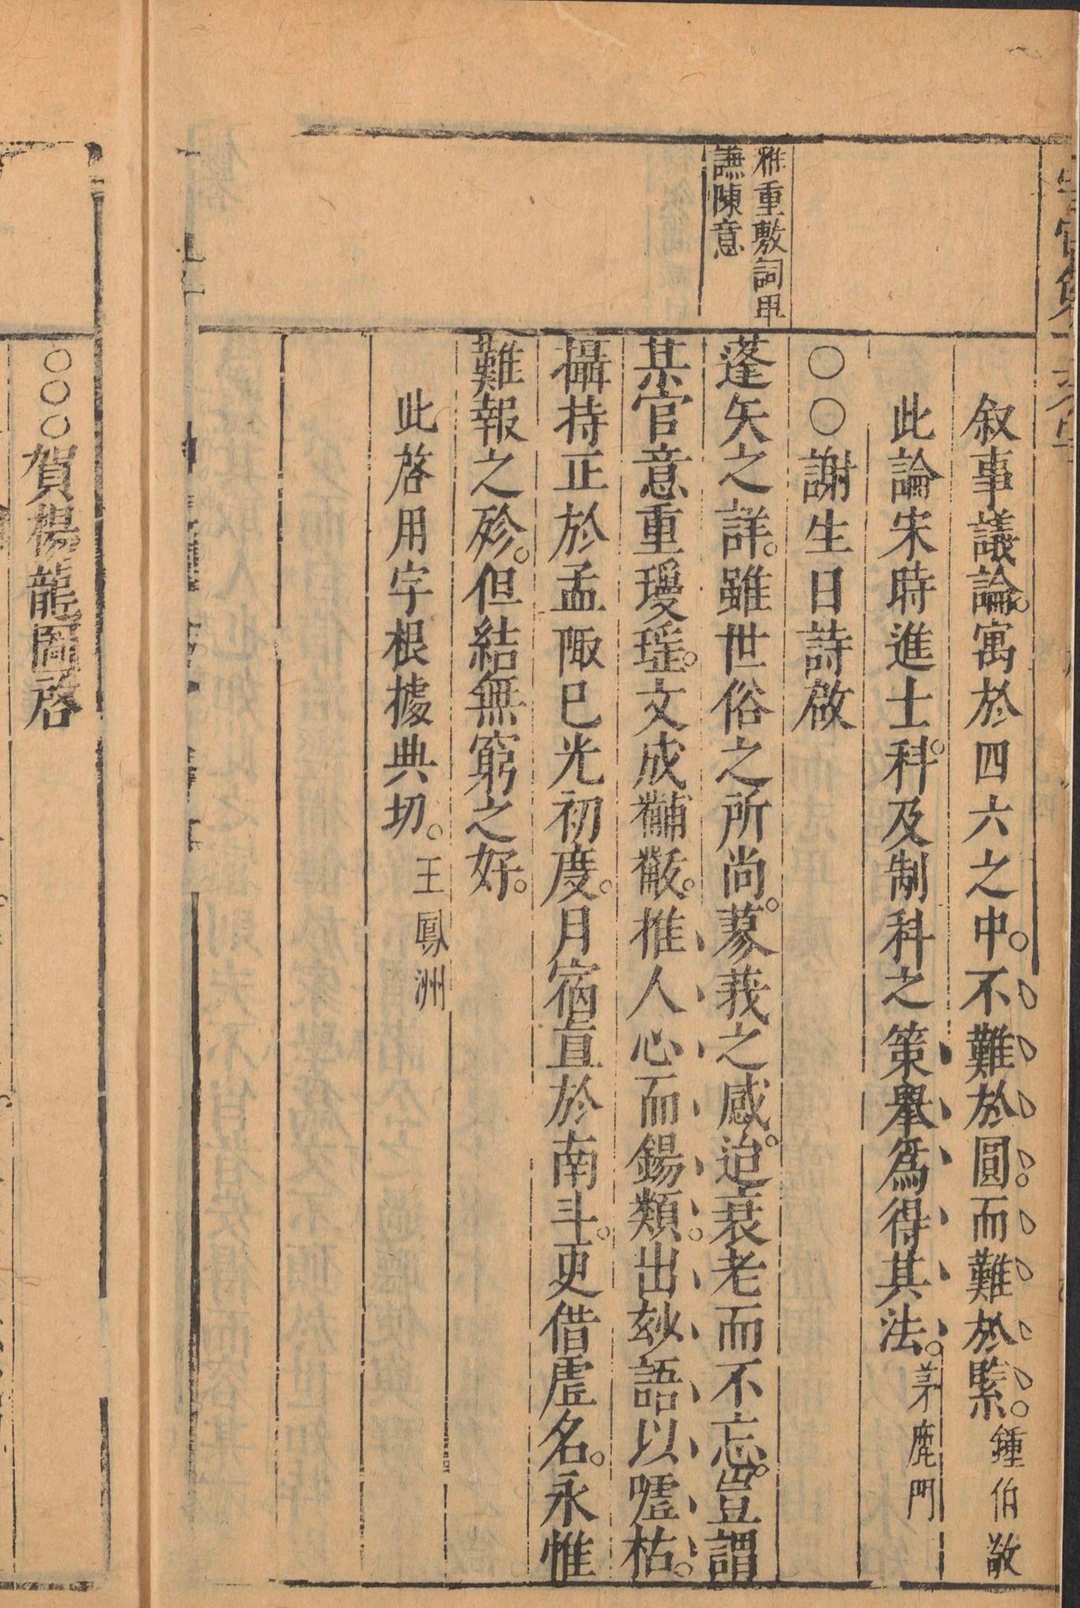 叙事議論。寓於四六之中。不難於圓。而難於緊。鍾伯敬
此論宋時進士科。及制科之策舉爲得其法。茅鹿門
○○謝生日詩啟
雅重敷詞甲
謙陳意
蓬矢之詳。雖世俗之所尚。蓼莪之感。迨衰老而不忘。豈謂
某官意重瓊瑤。文成黼黻。推人心而錫類。出玅語以噓枯。
攝持正於孟陬已光初度。月宿直於南斗。更借虛名。永惟
難報之殄。但結無窮之好。
此啓用字根據典切。王鳳洲
○○○賀楊龍圖啓